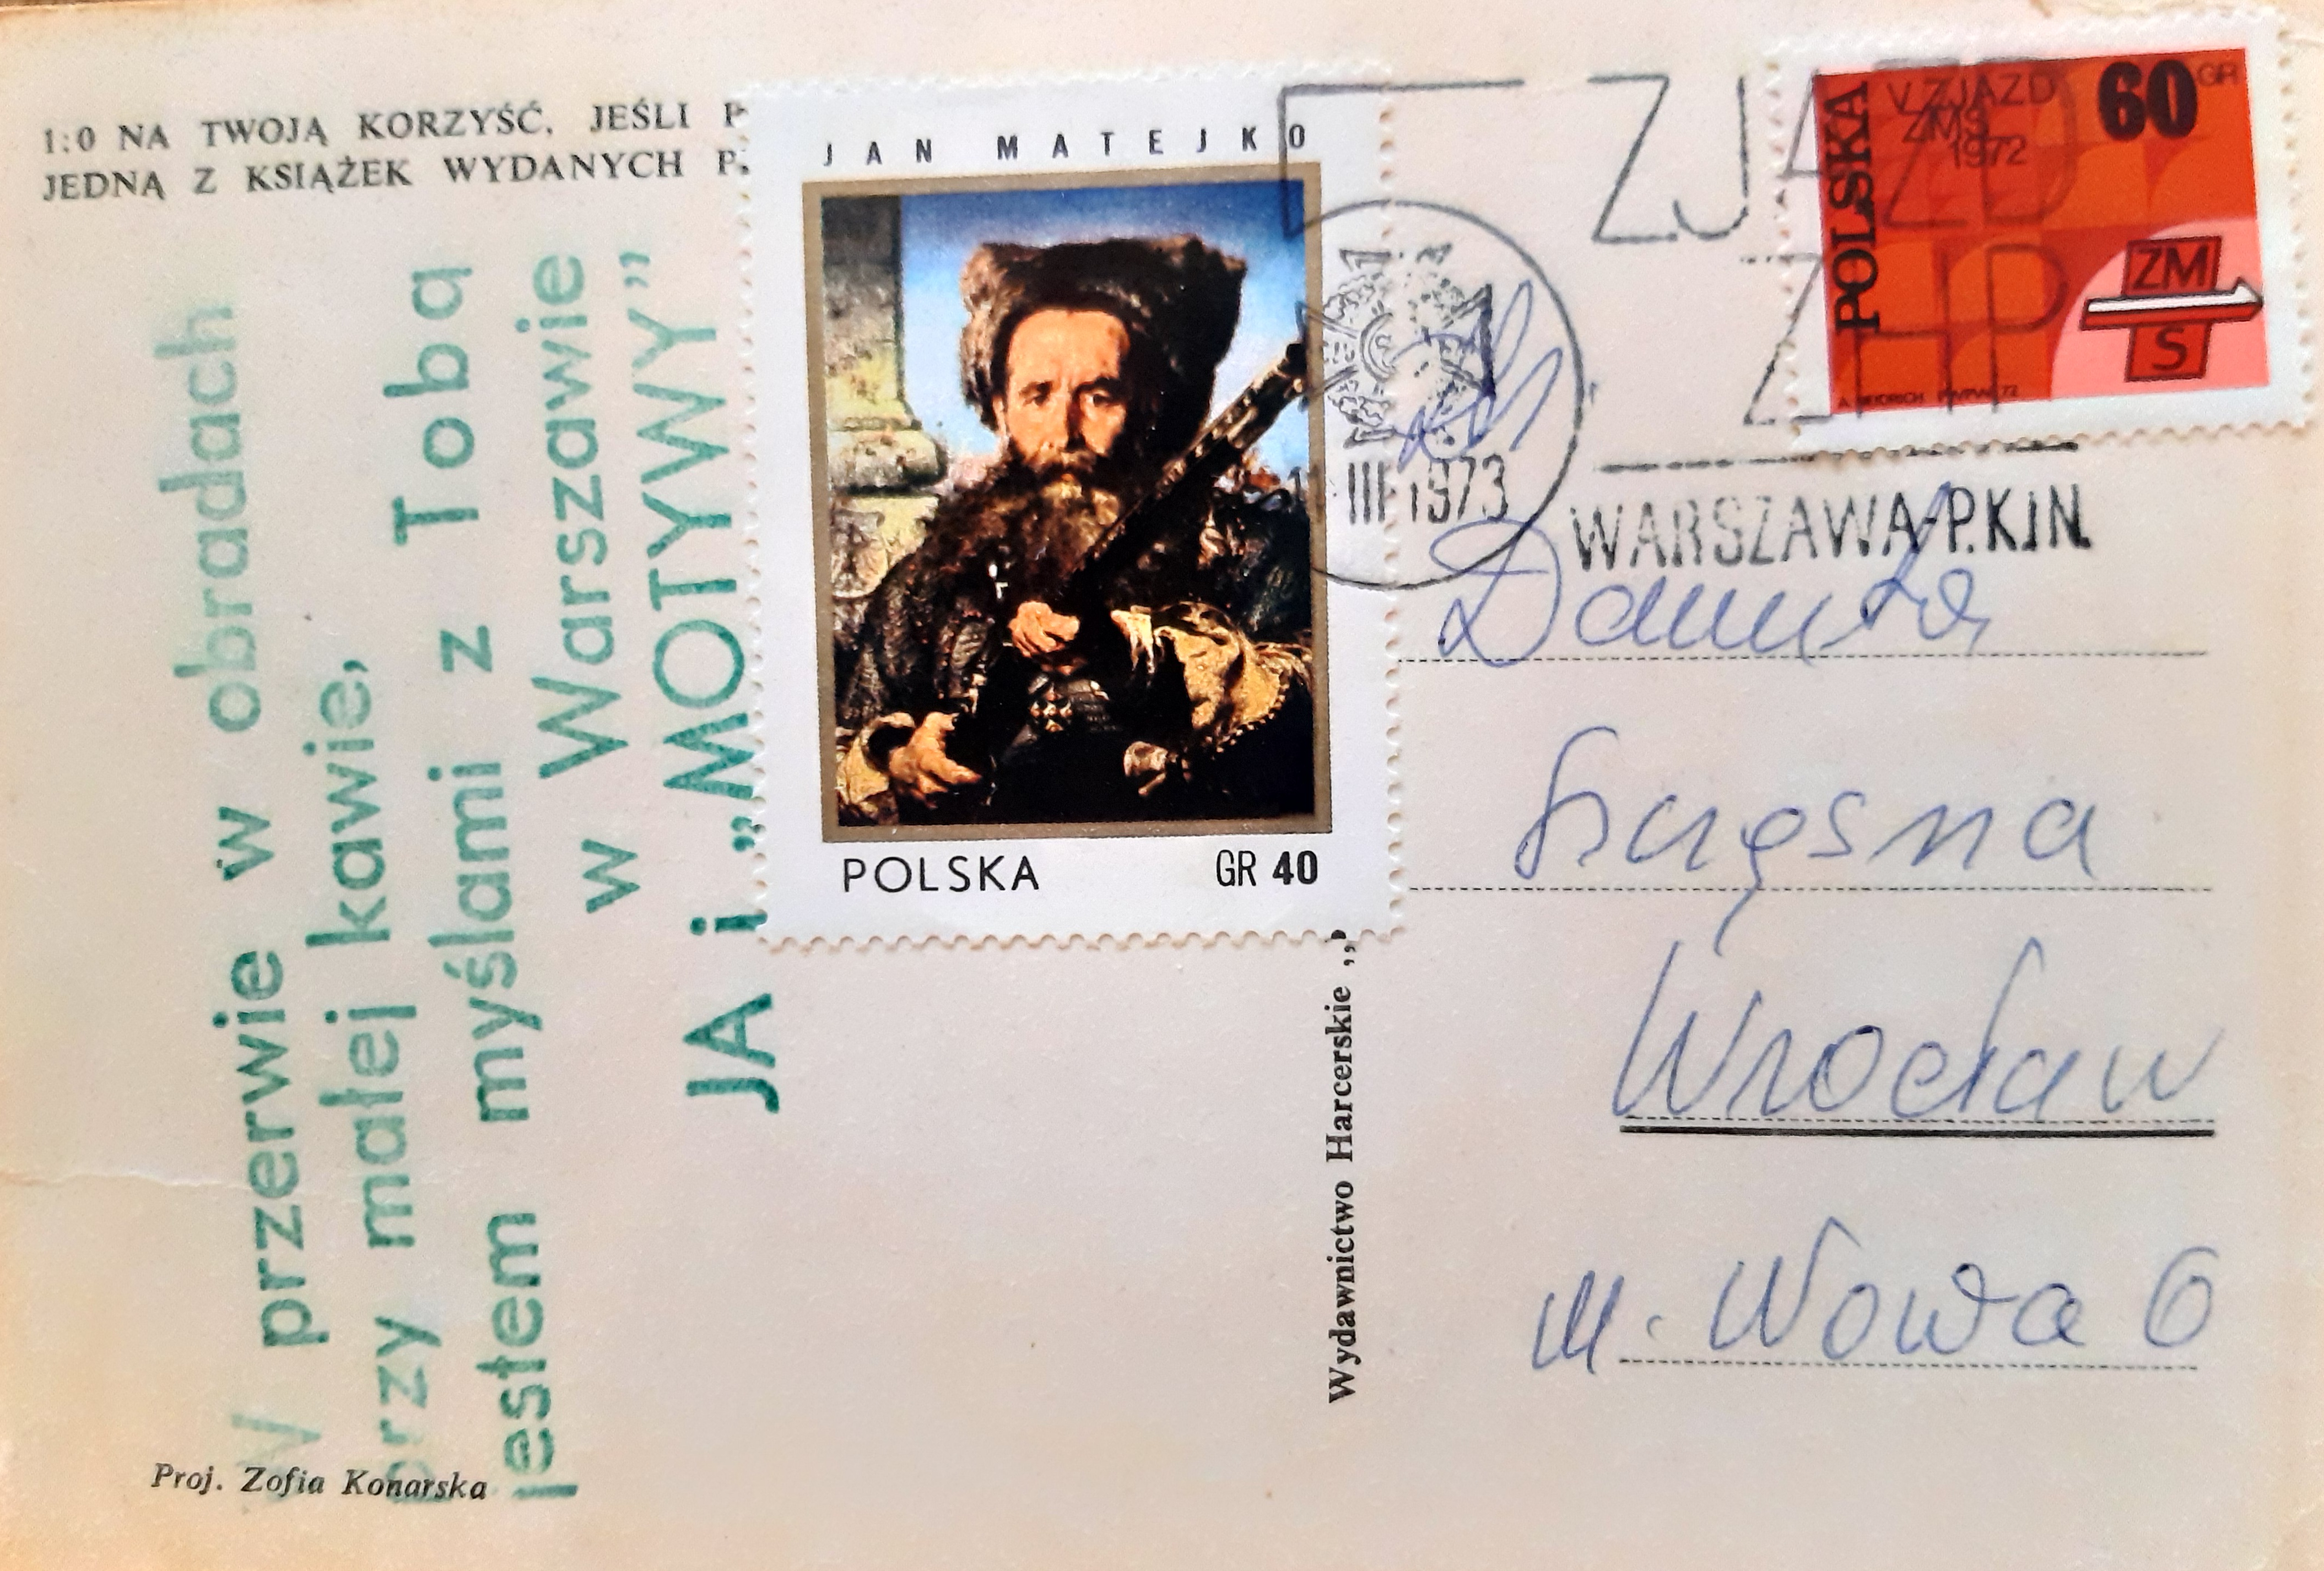 1:0 NA TWOJĄ KORZYŚĆ, JEŚLI P
JEDNĄ Z KSIĄŻEK WYDANYCH P
W przerwie w obradach
przy małej kawie,
jestem myślami z Tobą
w Warszawie
JA i „MOTYWY”
Proj. Zofia Konarska
JAN MATEJKO
POLSKA GR 40
Wydawnictwo Harcerskie „
ZJAZD
ZHP
III 1973
WARSZAWA-P.K.i N.
POLSKA
V ZJAZD
ZMS
1972
60 GR
ZM
S
A. HEIDRICH PWPW 72
Danuta
Wrocław
6